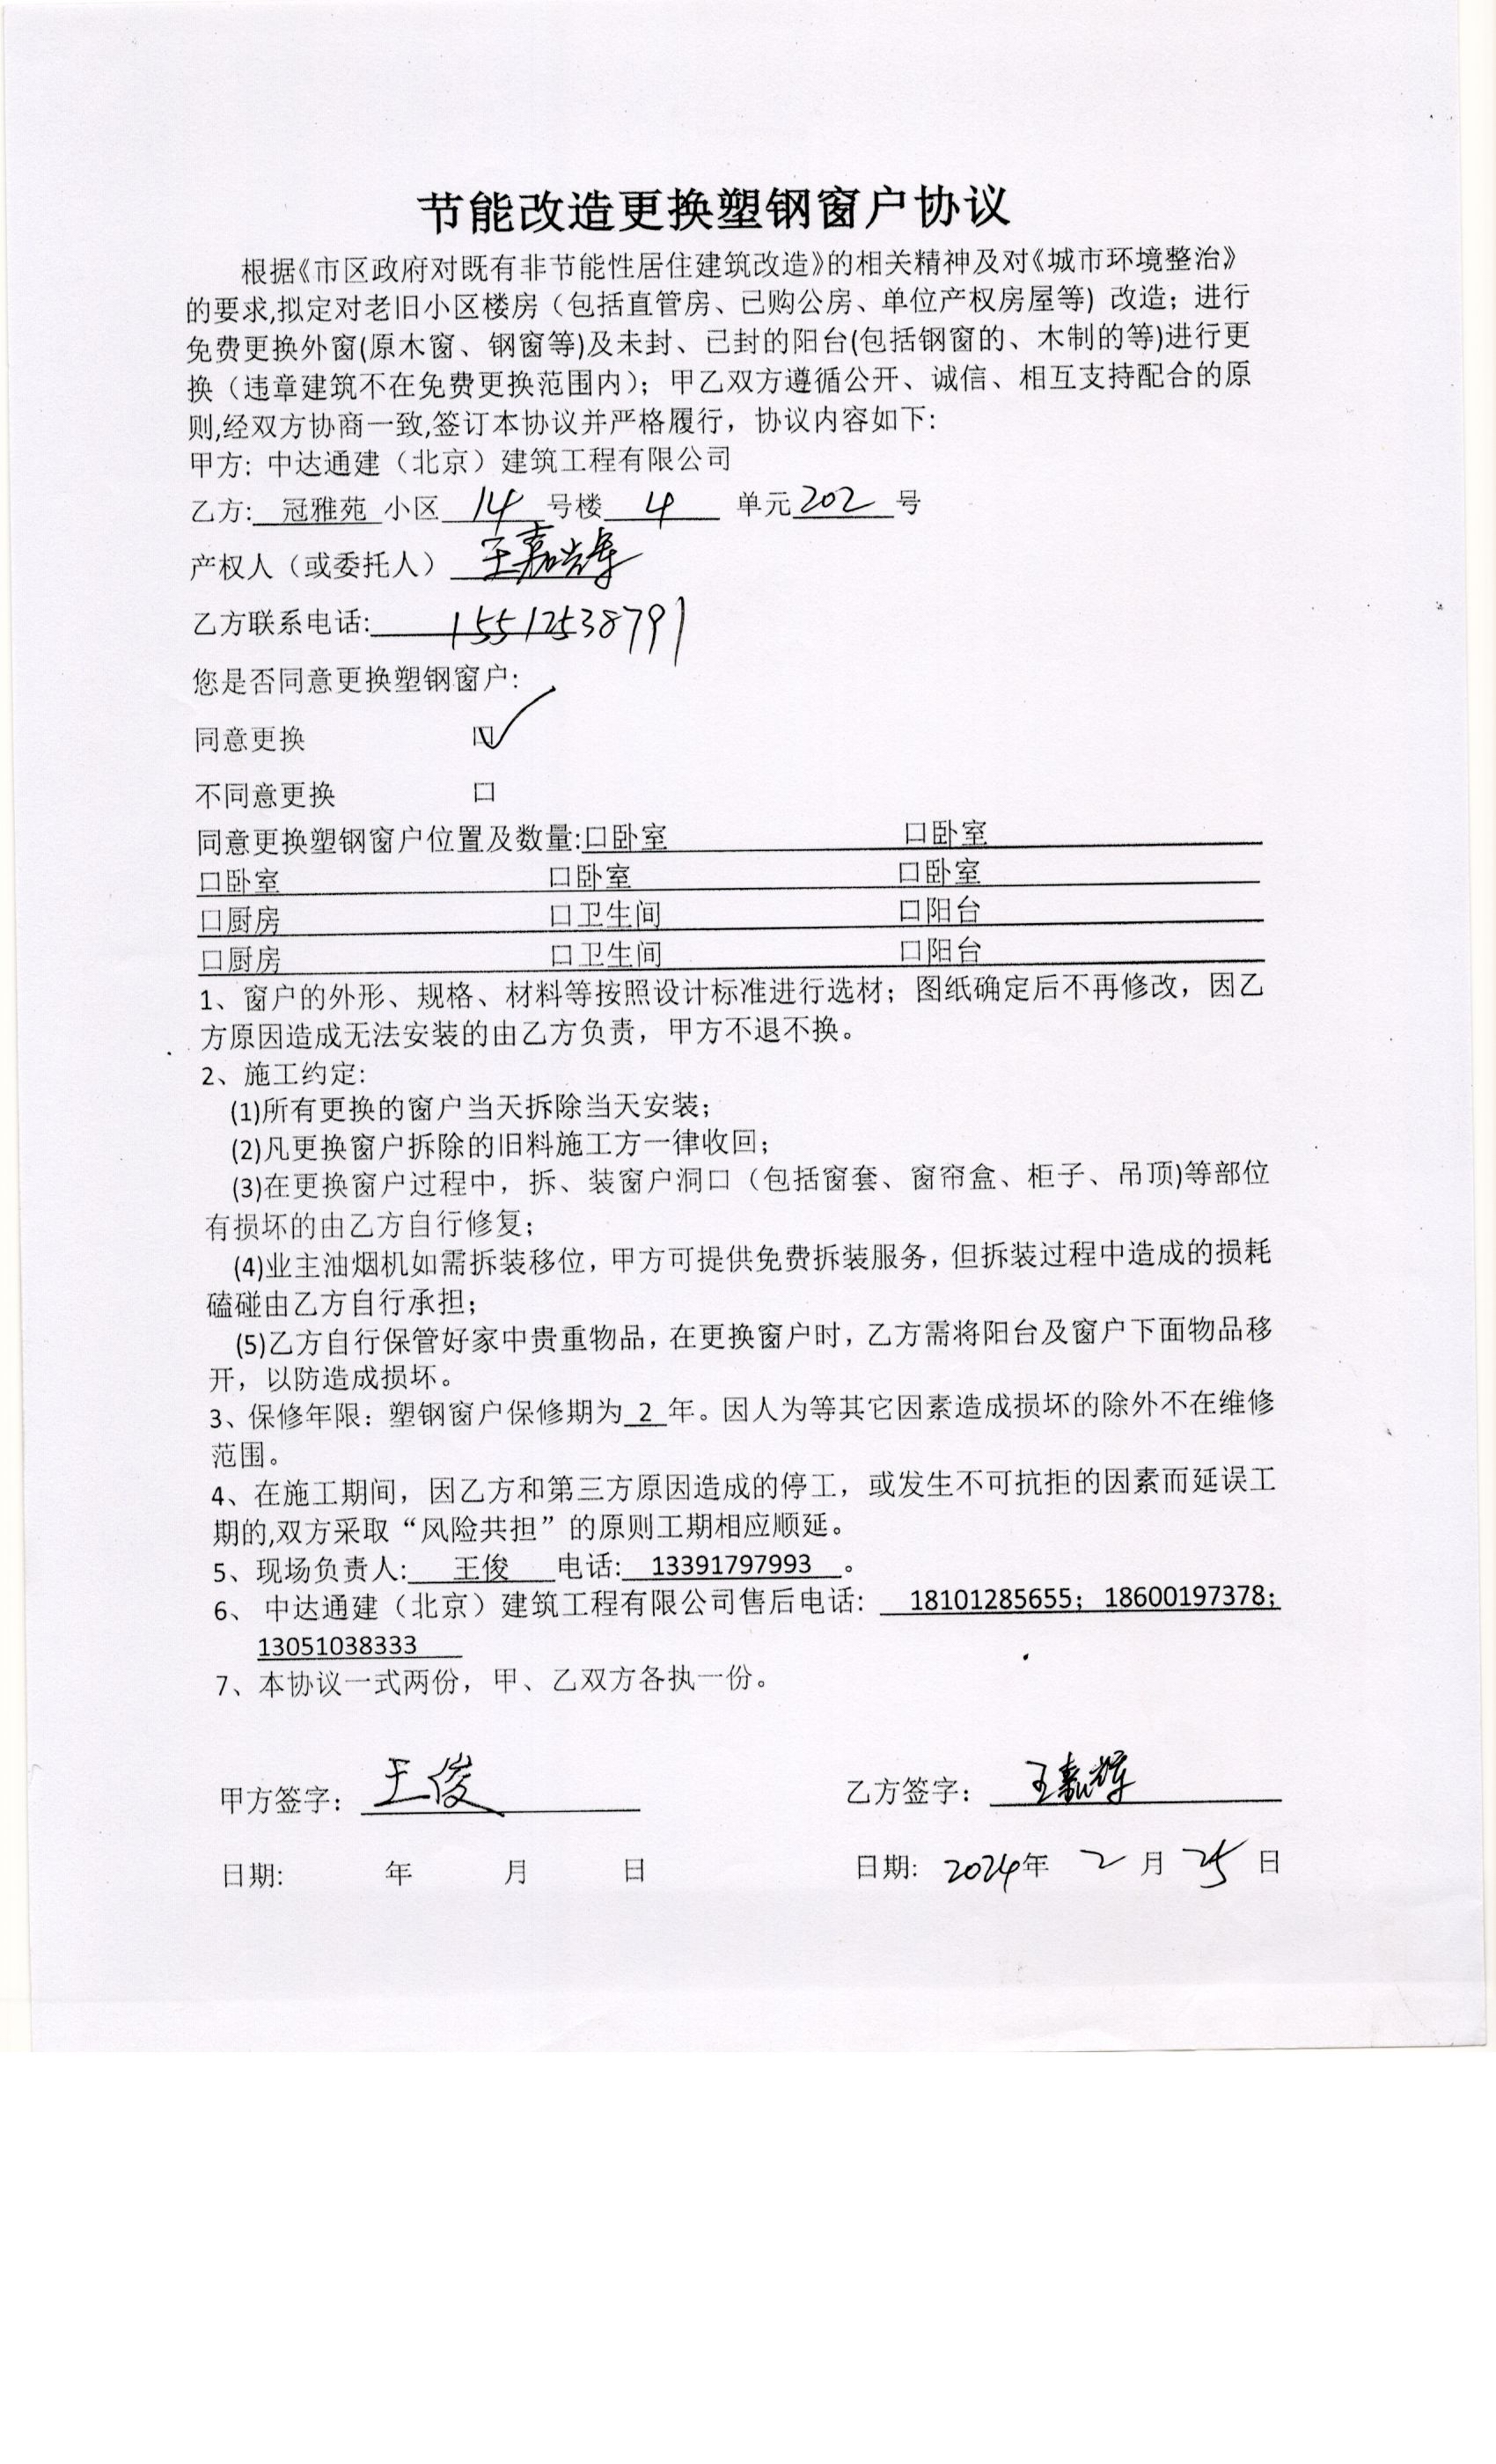 节能改造更换塑钢窗户协议
根据《市区政府对既有非节能性居住建筑改造》的相关精神及对《城市环境整治》
的要求,拟定对老旧小区楼房（包括直管房、已购公房、单位产权房屋等) 改造；进行
免费更换外窗(原木窗、钢窗等)及未封、已封的阳台(包括钢窗的、木制的等)进行更
换（违章建筑不在免费更换范围内)；甲乙双方遵循公开、诚信、相互支持配合的原
则,经双方协商一致,签订本协议并严格履行，协议内容如下:
甲方: 中达通建（北京）建筑工程有限公司
乙方: 冠雅苑 小区 14 号楼 4 单元 202 号
产权人（或委托人） 王嘉辉
乙方联系电话: 15512538791
您是否同意更换塑钢窗户:
同意更换 口✓
不同意更换 口
同意更换塑钢窗户位置及数量:口卧室 口卧室
口卧室 口卧室 口卧室
口厨房 口卫生间 口阳台
口厨房 口卫生间 口阳台
1、窗户的外形、规格、材料等按照设计标准进行选材；图纸确定后不再修改，因乙
方原因造成无法安装的由乙方负责，甲方不退不换。
2、施工约定:
(1)所有更换的窗户当天拆除当天安装；
(2)凡更换窗户拆除的旧料施工方一律收回；
(3)在更换窗户过程中，拆、装窗户洞口（包括窗套、窗帘盒、柜子、吊顶)等部位
有损坏的由乙方自行修复；
(4)业主油烟机如需拆装移位，甲方可提供免费拆装服务，但拆装过程中造成的损耗
磕碰由乙方自行承担；
(5)乙方自行保管好家中贵重物品，在更换窗户时，乙方需将阳台及窗户下面物品移
开，以防造成损坏。
3、保修年限：塑钢窗户保修期为 2 年。因人为等其它因素造成损坏的除外不在维修
范围。
4、在施工期间，因乙方和第三方原因造成的停工，或发生不可抗拒的因素而延误工
期的,双方采取“风险共担”的原则工期相应顺延。
5、现场负责人: 王俊 电话: 13391797993 。
6、 中达通建（北京）建筑工程有限公司售后电话: 18101285655；18600197378；
13051038333
7、本协议一式两份，甲、乙双方各执一份。
甲方签字： 王俊 乙方签字： 王嘉辉
日期: 年 月 日 日期: 2024年 2 月 25 日